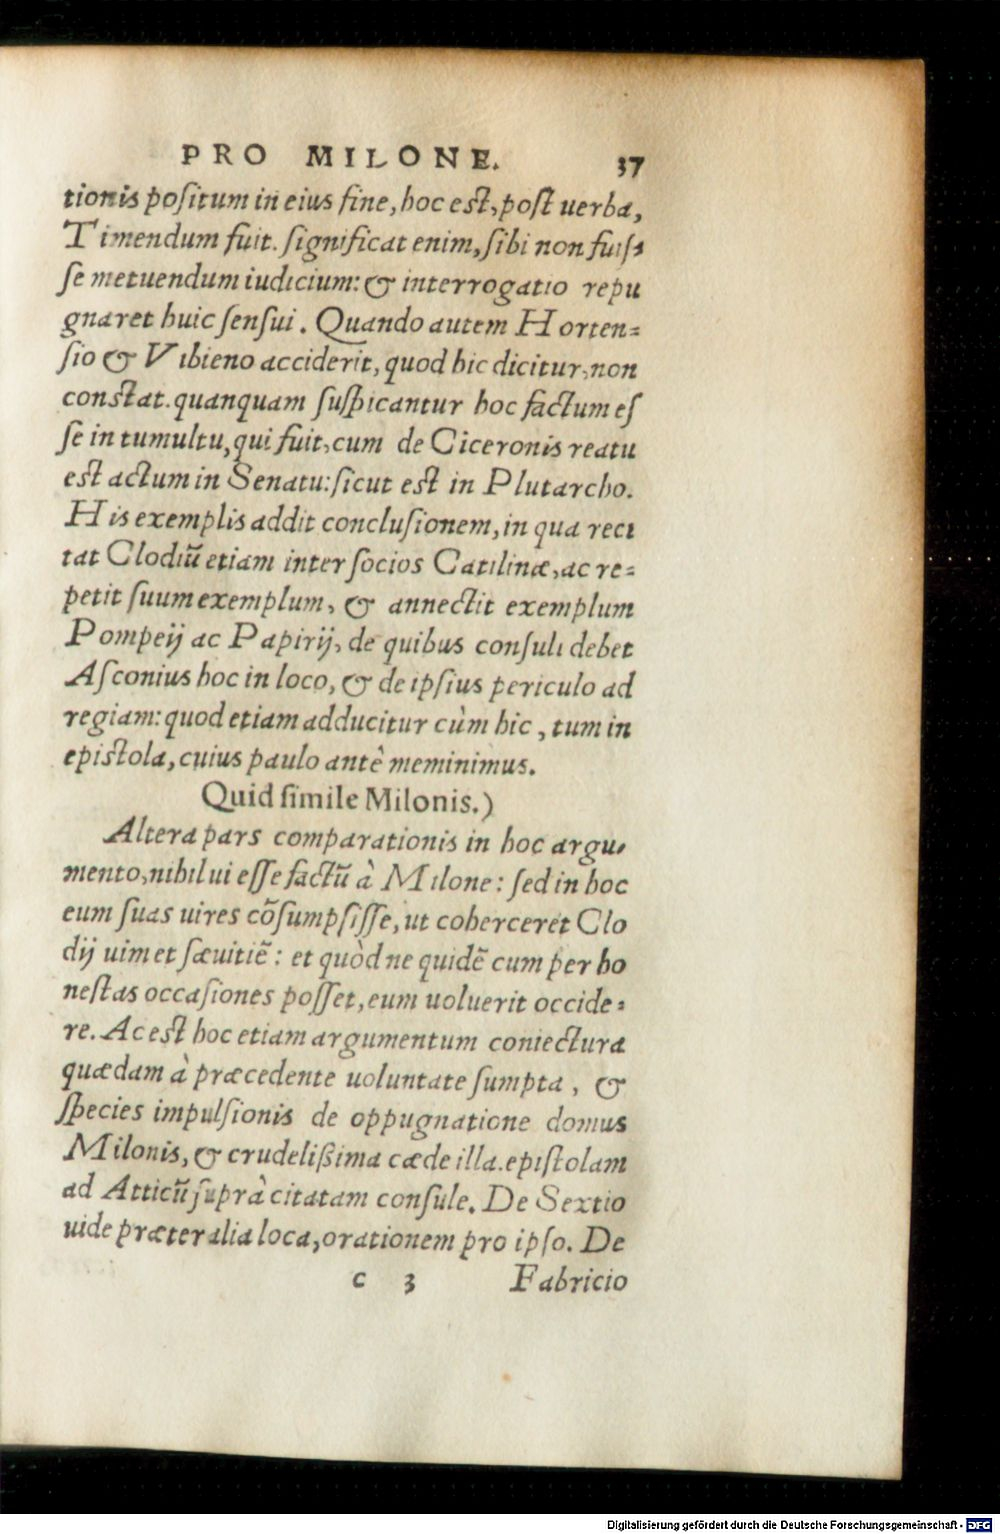 PRO MILONE. 37
tionis positum in eius fine, hoc est, post uerba,
Timendum fuit. significat enim, sibi non fuis-
se metuendum iudicium: & interrogatio repu
gnaret huic sensui. Quando autem Horten=
sio & Vibieno acciderit, quod hic dicitur, non
constat. quanquam suspicantur hoc factum es
se in tumultu, qui fuit, cum de Ciceronis reatu
est actum in Senatu: sicut est in Plutarcho.
His exemplis addit conclusionem, in qua reci
tat Clodiũ etiam inter socios Catilinæ, ac re=
petit suum exemplum, & annectit exemplum
Pompeij ac Papirij, de quibus consuli debet
Asconius hoc in loco, & de ipsius periculo ad
regiam: quod etiam adducitur cùm hic, tum in
epistola, cuius paulo antè meminimus.
Quid simile Milonis.)
Altera pars comparationis in hoc argu-
mento, nihil ui esse factũ à Milone: sed in hoc
eum suas uires cõsumpsisse, ut coherceret Clo
dij uim et sæuitiẽ: et quòd ne quidẽ cum per ho
nestas occasiones posset, eum uoluerit occide=
re. Ac est hoc etiam argumentum coniectura
quædam à præcedente uoluntate sumpta, &
species impulsionis de oppugnatione domus
Milonis, & crudelißima cæde illa. epistolam
ad Atticũ suprà citatam consule. De Sextio
uide præter alia loca, orationem pro ipso. De
c 3 Fabricio
Digitalisierung gefördert durch die Deutsche Forschungsgemeinschaft - DFG